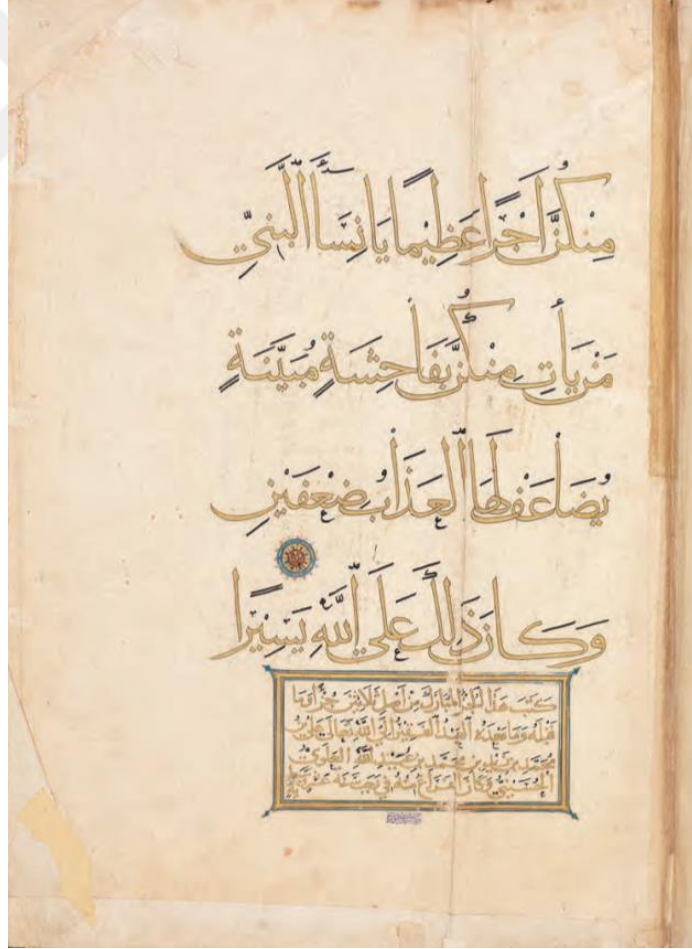 مِنكُنَّ أَجْرًا عَظِيمًا يَا نِسَآءَ النَّبِيِّ
مَن يَأْتِ مِنكُنَّ بِفَاحِشَةٍ مُبَيِّنَةٍ
يُضَاعَفْ لَهَا الْعَذَابُ ضِعْفَيْنِ
وَكَانَ ذَٰلِكَ عَلَى اللَّهِ يَسِيرًا
كتب هذا الجزء المبارك من اصل ثلاثين جزءا وما
قبله وما بعده العبد الفقير الى الله تعالى علي بن
محمد بن زيد بن محمد بن عبيد الله العلوي
الحسيني وكان الفراغ منه في